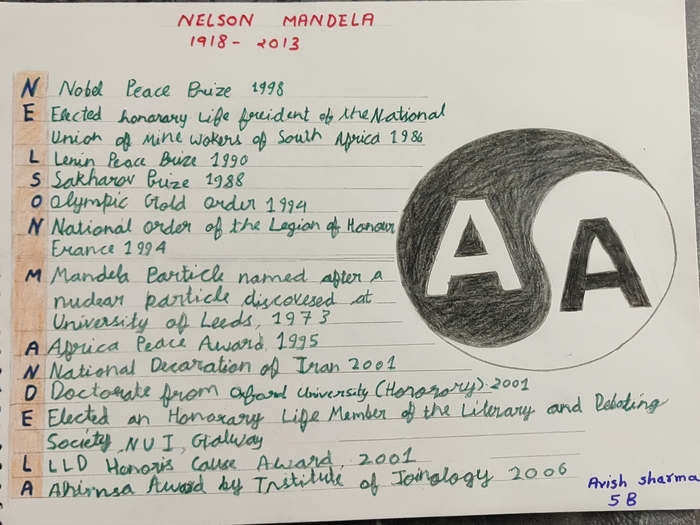 NELSON MANDELA
1918- 2013
N Nobel Peace Prize 1998
E Elected honorary Life President of the National
Union of Mine Wokers of South Africa 1986
L Lenin Peace Prize 1990
S Sakharov Prize 1988
O Olympic Gold order 1994
N National order of the Legion of Honour
France 1994
M Mandela Particle named after a
nuclear particle discovesed at
University of Leeds, 1973
A Africa Peace Award 1995
N National Decaration of Iran 2001
D Doctorate from Oxford University (Honorory) 2001
E Elected an Honorary Life Member of the Literary and Debating
Society, NUI, Galway
L LLD Honoris Cause Award, 2001
A Ahimsa Award by Institute of Joinology 2006
A A
Avish sharma
5 B